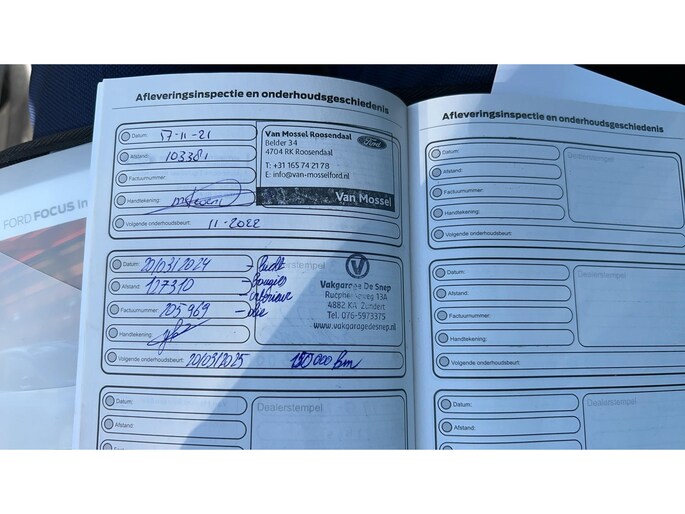 Afleveringsinspectie en onderhoudsgeschiedenis
Datum: 17-11-21
Afstand: 103381
Factuurnummer:
Handtekening:
Volgende onderhoudsbeurt: 11-2022
Van Mossel Roosendaal
Belder 34
4704 RK Roosendaal
T: +31 165 74 21 78
E: info@van-mosselford.nl
Ford
Van Mossel
Datum: 20/03/2024
Afstand: 127310
Factuurnummer: 205969
Handtekening:
Volgende onderhoudsbeurt: 20/03/2025 150 000 km
- Bougies
Vakgarage De Snep
13A
4882 KA Zundert
Tel. 076-5973375
www.vakgaragedesnep.nl
Datum:
Afstand:
Dealerstempel
FORD FOCUS In
Afleveringsinspectie en onderhoudsgeschiedenis
Datum:
Afstand:
Factuurnummer:
Handtekening:
Volgende onderhoudsbeurt:
Dealerstempel
Datum:
Afstand:
Factuurnummer:
Handtekening:
Volgende onderhoudsbeurt:
Dealerstempel
Datum:
Afstand:
Dealerstempel